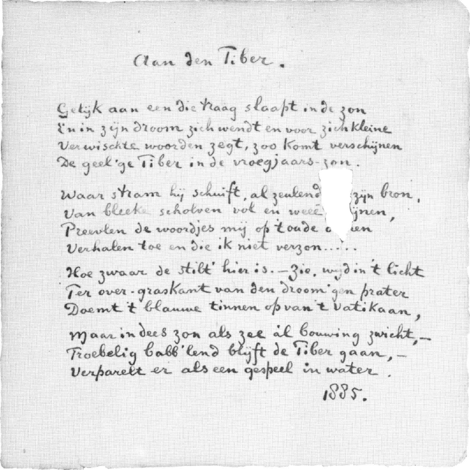 Aan den Tiber.
Gelijk aan een die traag slaapt in de zon
En in zijn droom zich wendt en voor zich kleine
Verwischte woorden zegt, zoo komt verschijnen
De geel'ge Tiber in de vroegjaars-zon.
Waar stram hij schuift, al zeulend zijn bron,
Van bleeke scholven vol en ijnen,
Preevlen de woordjes mij op t oude
Verhalen toe en die ik niet verzon.....
Hoe zwaar de stilt' hier is. — zie, wijd in 't licht
Ter over-graskant van den droom'gen prater
Doemt 't blauwe tinnen op van 't Vatikaan,
Maar in dees zon als zee al bouwing zwicht, —
Troebelig babb'lend blijft de Tiber gaan, —
Verparelt er als een gespeel in water.
1885.